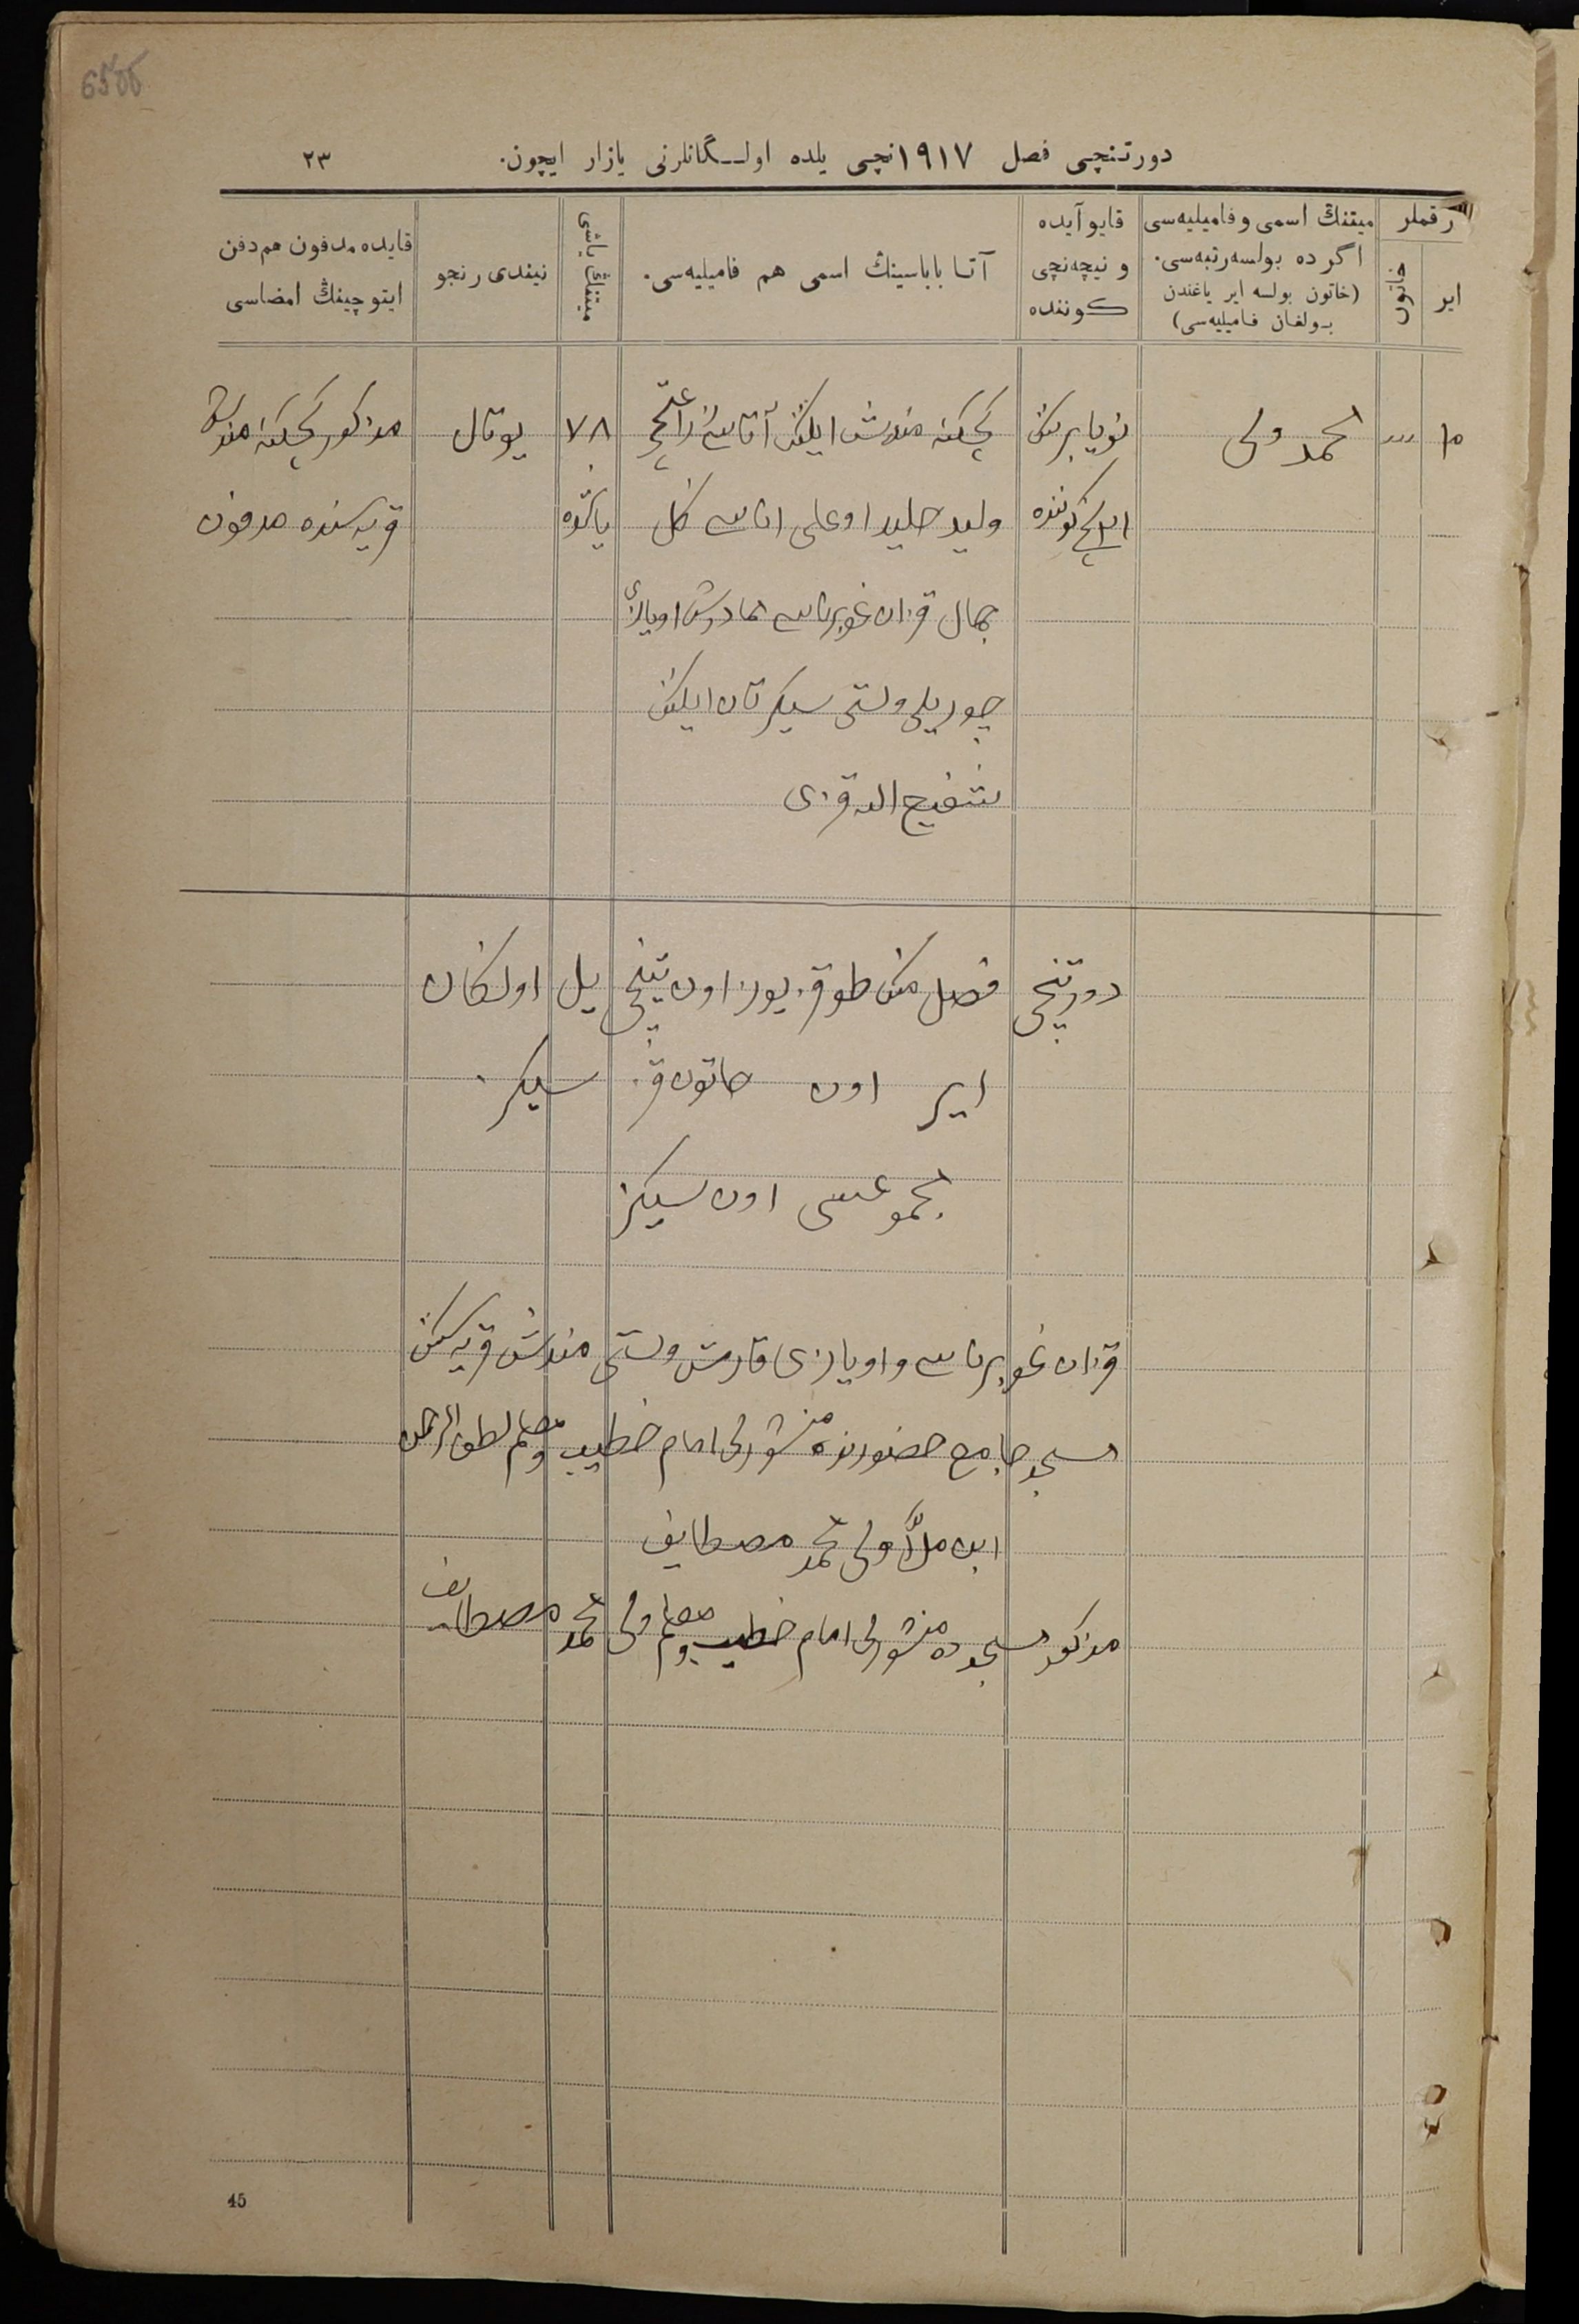 دورتنچی فصل ١٩١٧نچی یلده اولـگانلرنی یازار ایچون. ٢٣
رقملر
ایر
خاتون
میتنڭ اسمی و فامیلیه‌سی
اگر ده بولسه رتبه‌سی.
(خاتون بولسه ایر یاغندن
بولغان فامیلیه‌سی)
قایو آیده
و نیچه‌نچی
کوننده
آتا باباسینڭ اسمی هم فامیلیه‌سی.
میتنڭ یاشی
نیندی رنجو
قایده مدفون هم دفن
ایتوچینڭ امضاسی
١٠
محمد ولی
نویابرنڭ
کوننده
کچکنه مندش ایلینڭ آتاسی
ولید اوغلی اناسی کل
جمال قزان غوبرناسی اویازی
چوریلی ولستی ایلینڭ
شفیع الله قزی
٧٨
یاشده
یوتال
مذکور کچکنه مندش
قریه سنده مدفون
دورتنچی فصل منڭ طوقز یوز اون یتنچی یل اولکان
ایر اون خاتون قز سیکز
مجموعسی اون سیکز
قزان غوبرناسی و اویازی ولستی مندش قریه سینڭ
مسجد جامع حضورنده منشورلی امام خطیب و معلم لطف الرحمن
ابن ملا ولی محمد مصطایف
مذکور مسجدده منشورلی امام خطیب و معلم ولی محمد مصطایف
45